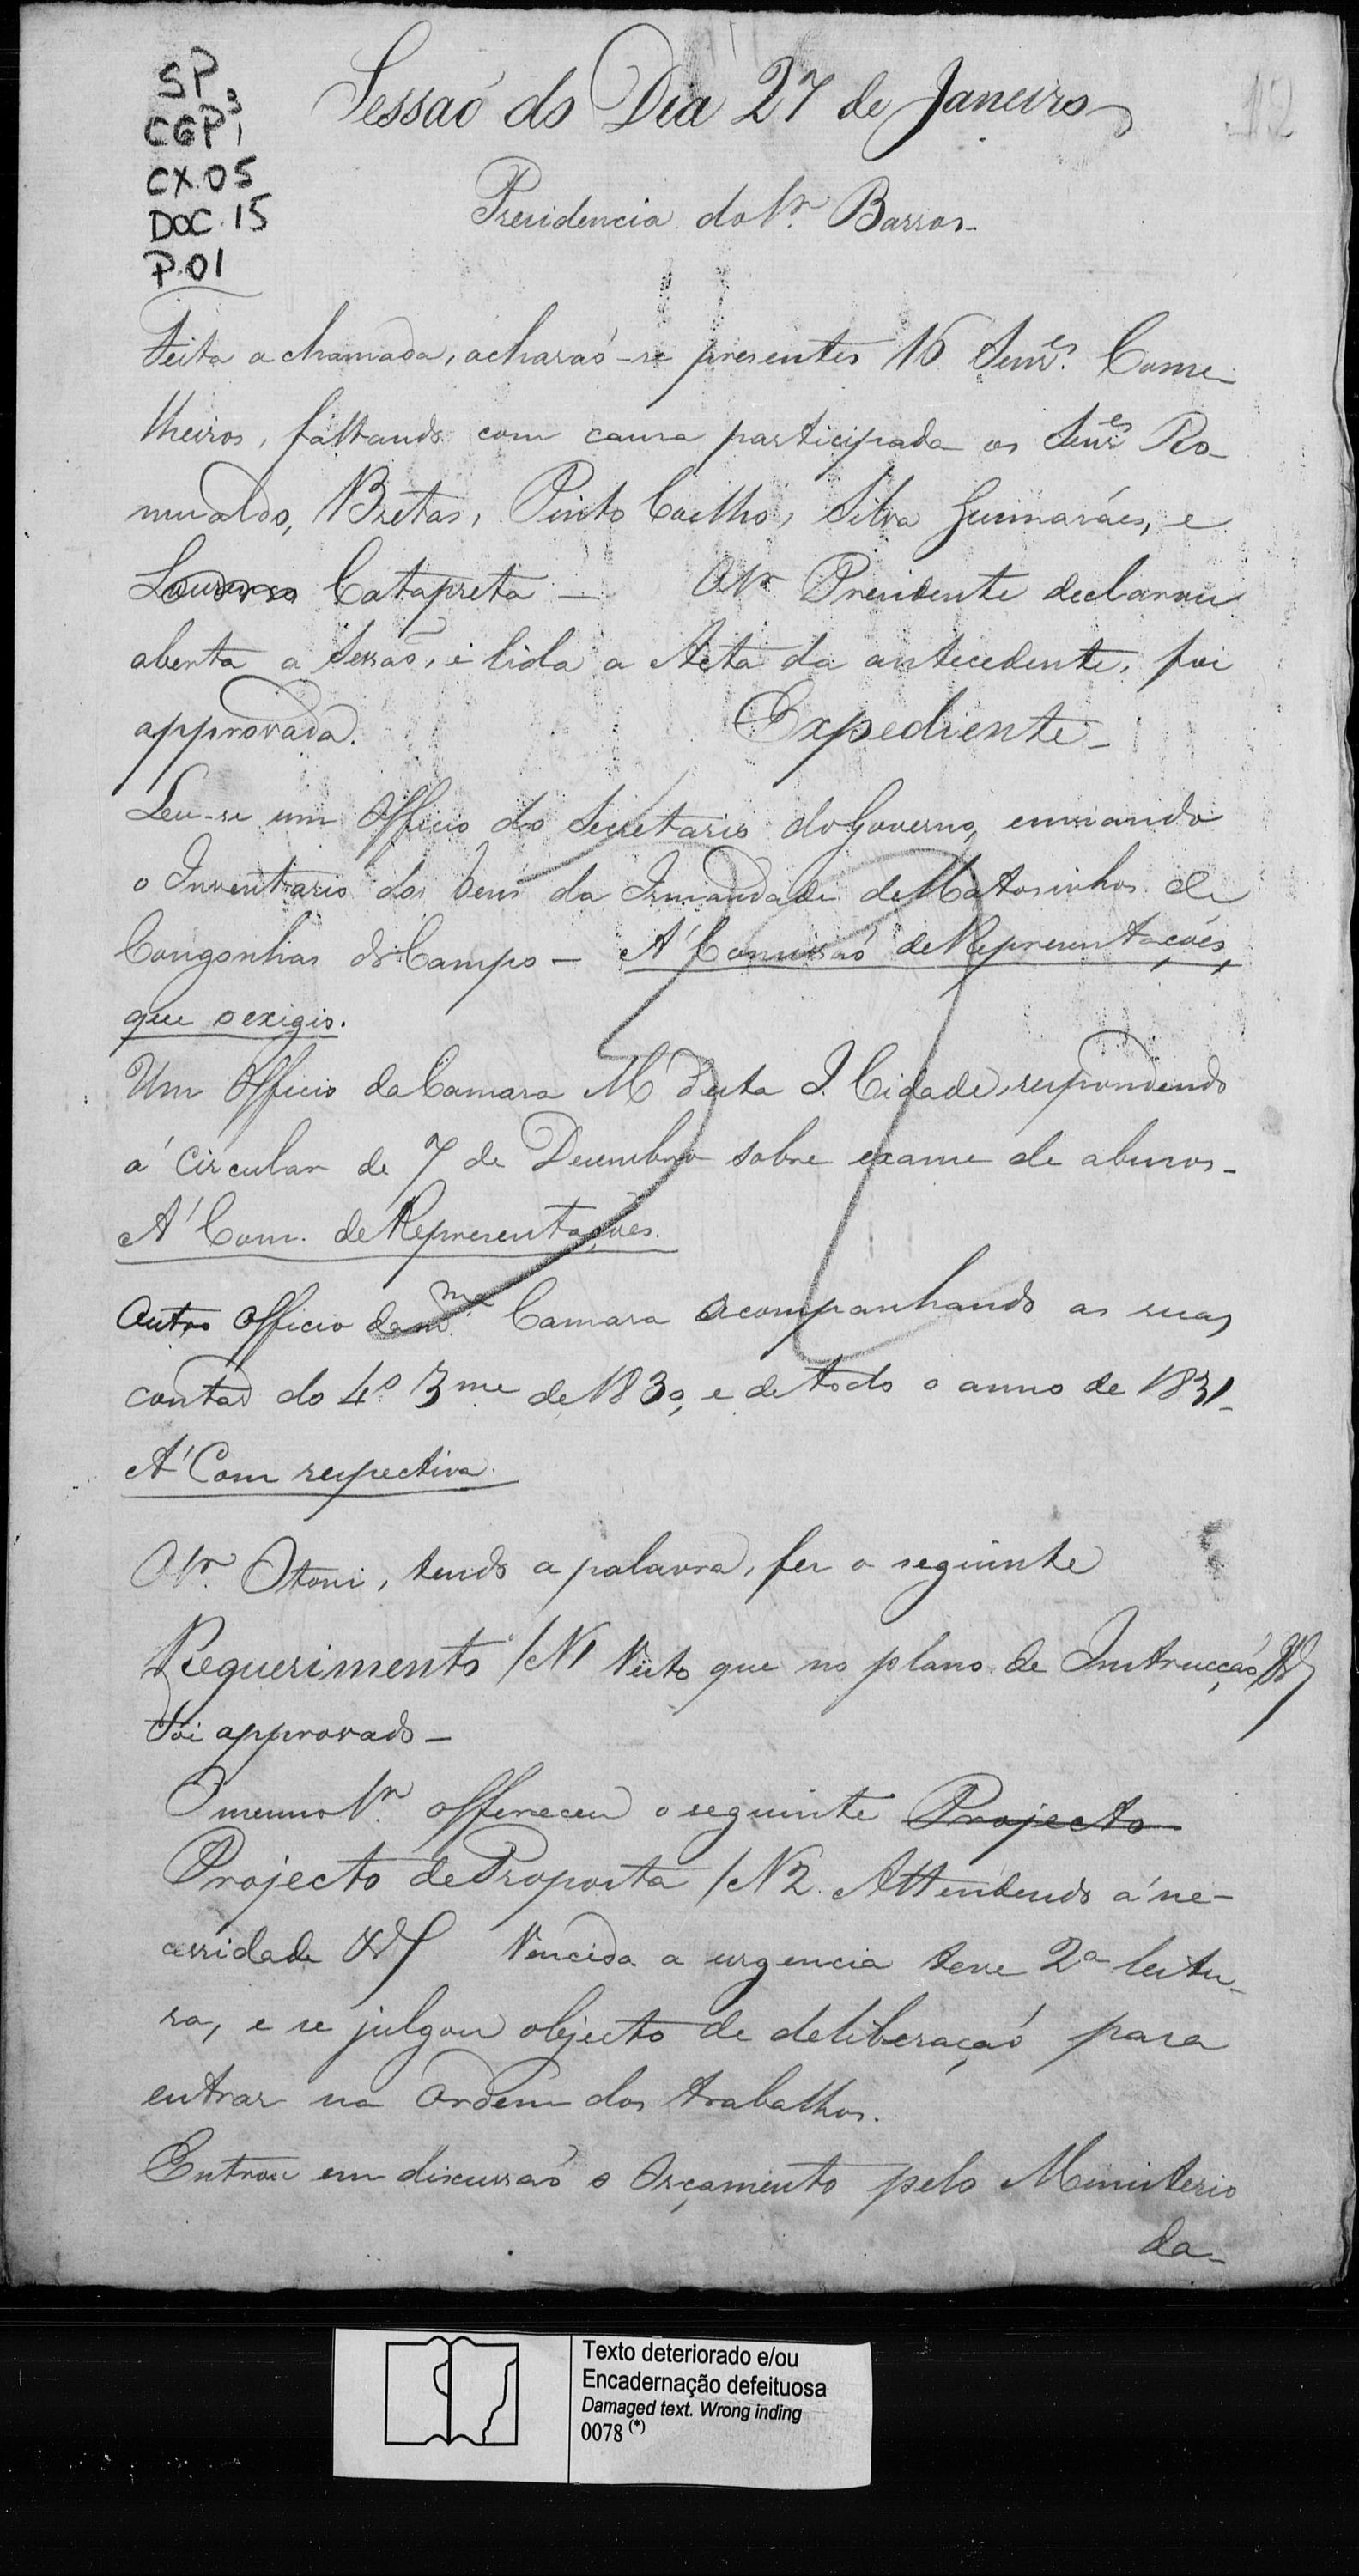 SP,
CGP1
CX.05
DOC.15
P.01
12
Sessaõ do Dia 27 de Janeiro
Presidencia do Sr. Barros-
Feita a chamada, acharaõ-se presentes 16 Senres. Conse-
lheiros, faltando com causa participada os Senres Ro-
mualdo, Bretas, Pinto Coelho, Silva Guimarães, e
Catapreta — O Sr Presidente declarou
aberta a Sessaõ, e lida a Acta da antecedente, foi
approvada. Expediente-
Leu-se um Officio do Secretario do Governo, enviando
o Inventario dos bens da Irmandade de Matosinhos de
Congonhas do Campo — A' Comissaõ de Representações,
que o exigio.
Um Officio da Camara M d'esta I. Cidade, respondendo
á Circular de 7 de Dezembro sobre exame de abusos-
A' Com. de Representações.
Outro Officio da mma. Camara acompanhando as suas
contas do 4º 3me de 1830, e de todo o anno de 1831-
A' Com respectiva.
O Sr. Otoni, tendo a palavra, fez o seguinte
Requerimento /N1 Visto que no plano de Instrucçaõ &/
Foi approvado —
O mesmo Sr. offereceu o seguinte Projecto
Projecto de Proposta /N2. Attendendo á ne-
cessidade &/ Vencida a urgencia teve 2a leitu-
ra, e se julgou objecto de deliberaçaõ para
entrar na Ordem dos trabalhos.
Entrou em discussaõ o Orçamento pelo Ministerio
da-
Texto deteriorado e/ou
Encadernação defeituosa
Damaged text. Wrong inding
0078 (*)